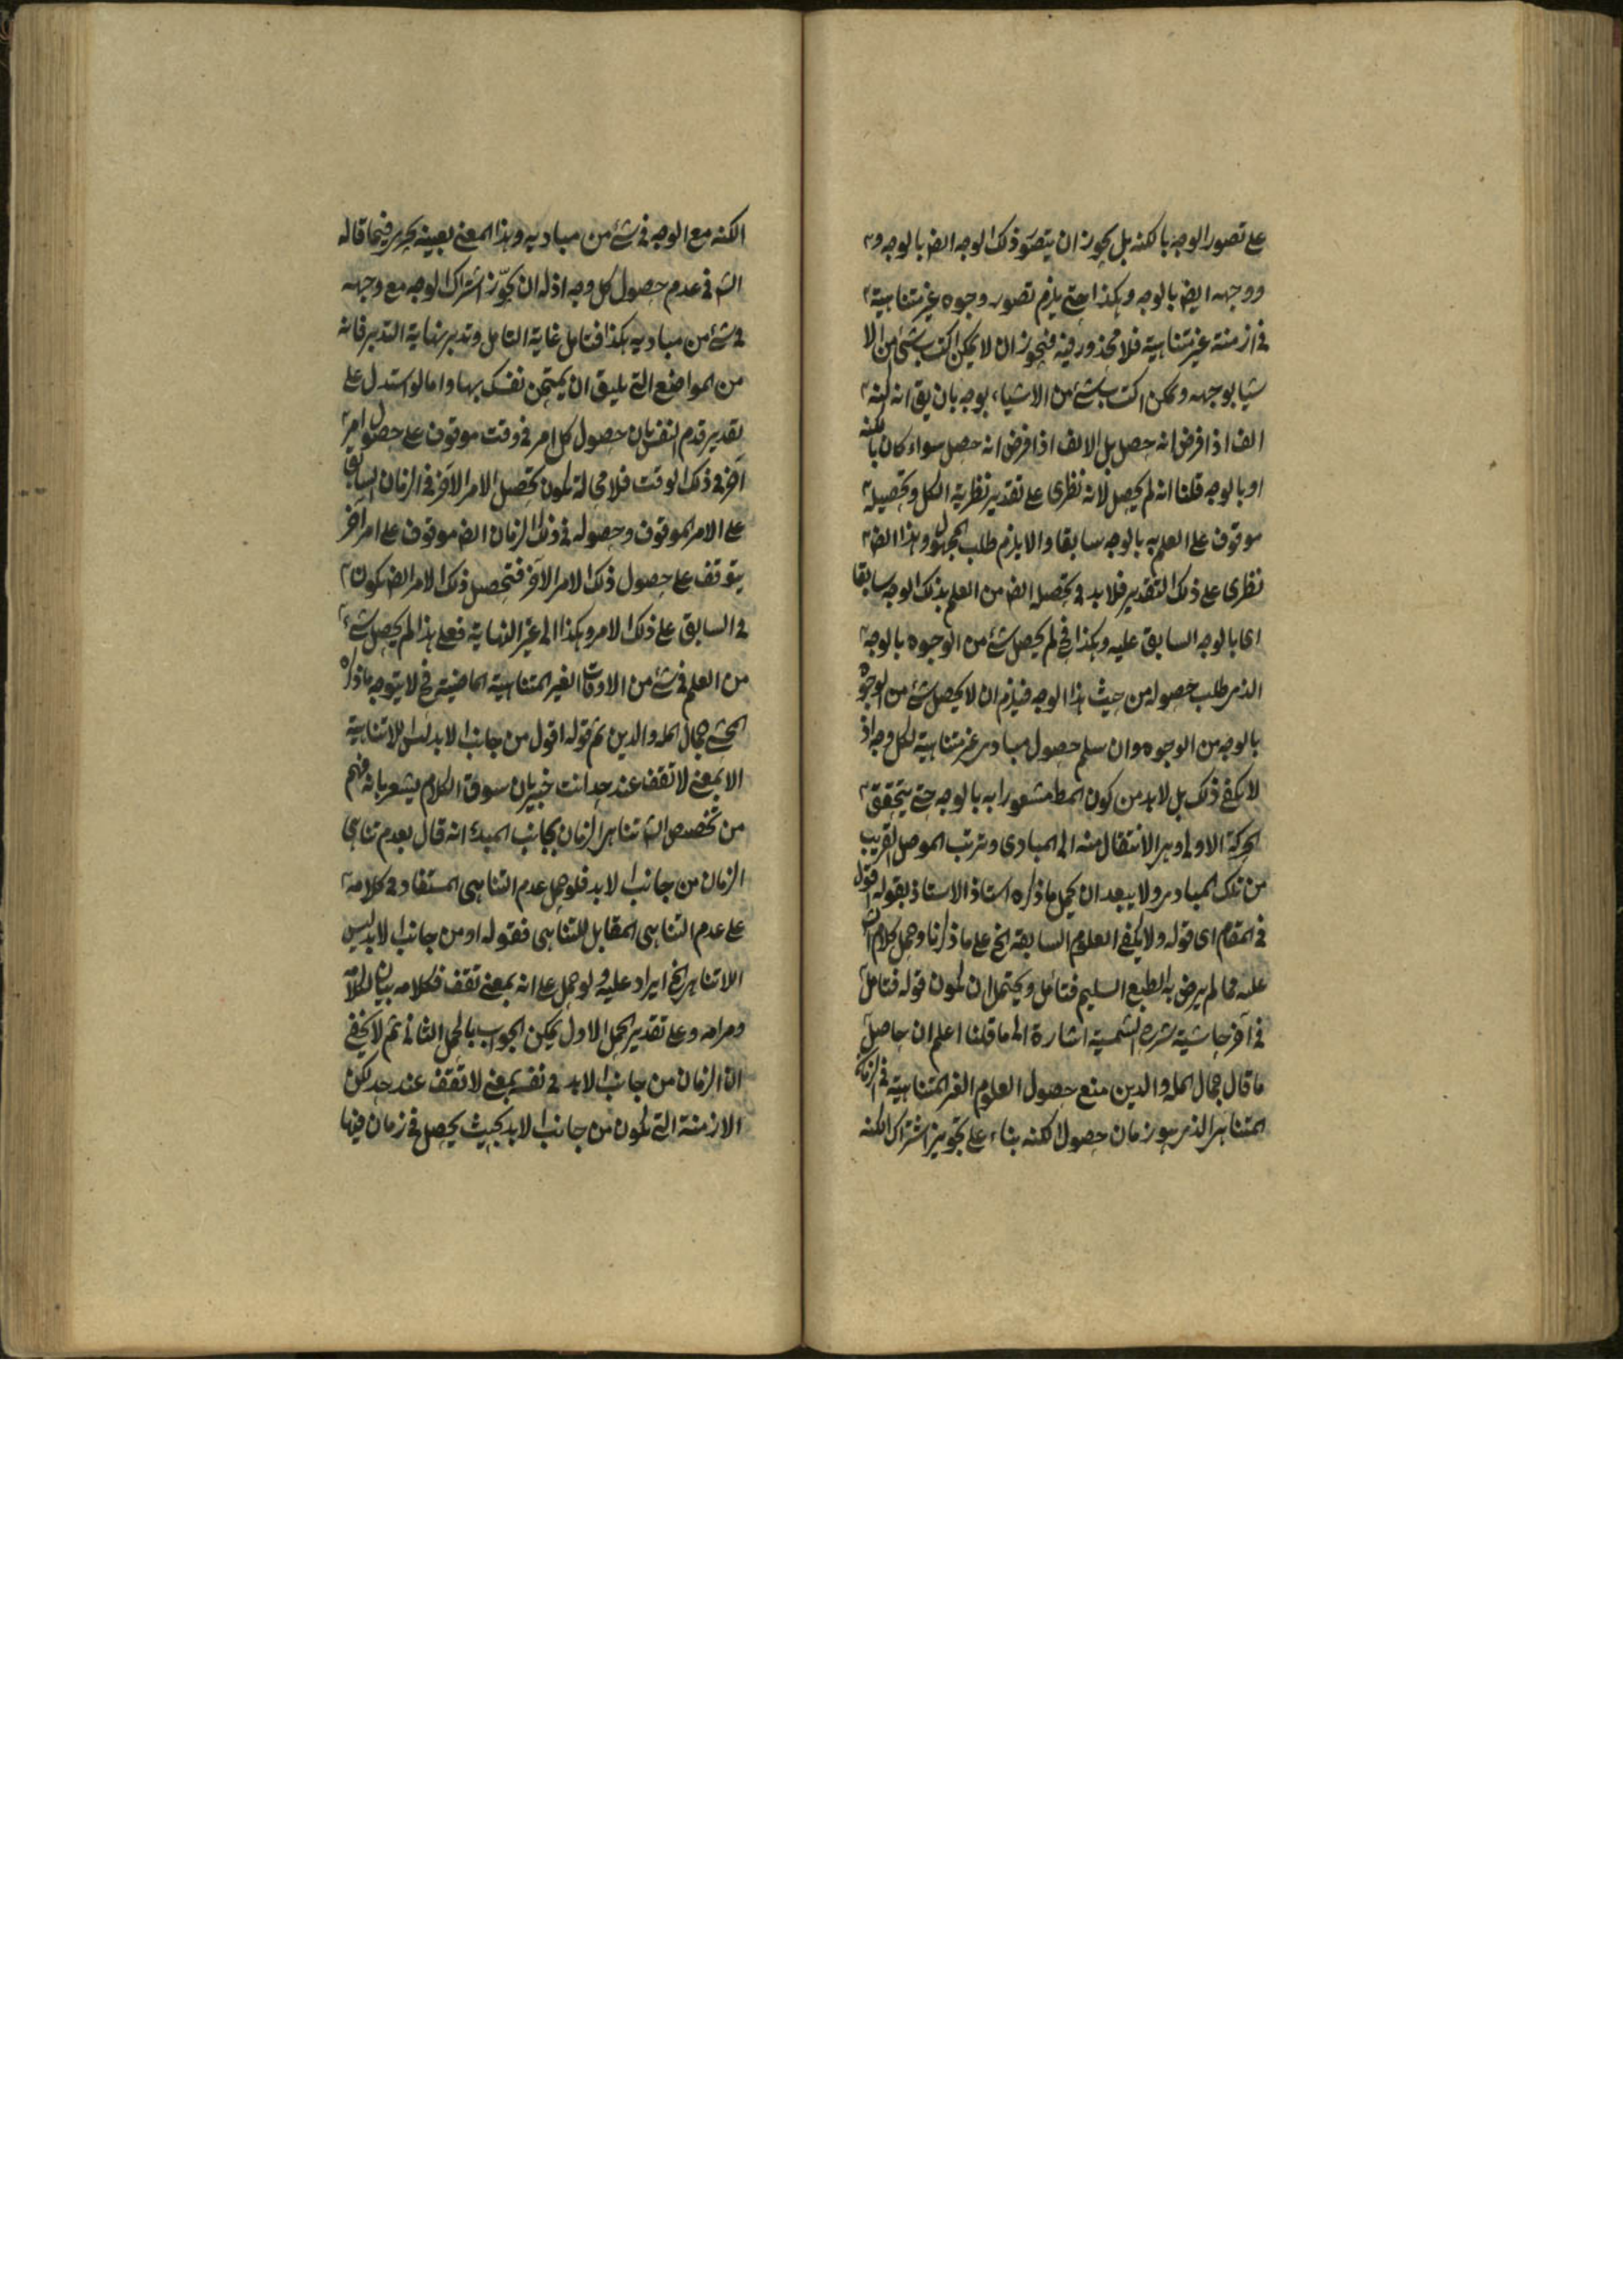 على تصور الوجه بالكنه بل يجوز ان يتصور ذلك الوجه ايض بالوجه و
ووجهه ايض بالوجه وهكذا حتى يلزم تصور وجوه غير متناهية
فى ازمنة غير متناهية فلا محذور فيه فيجوز ان لا يمكن اكتساب شئ من الا
شيا بوجهه ويمكن اكتساب شئ من الاشياء بوجه بان يق انه لكنه
الف اذا فرض انه حصل بل الالف اذا فرض انه حصل سواء كان بالكنه
او بالوجه قلنا انه لم يحصل لانه نظرى على تقدير نظرية الكل وتحصيله
موقوف على العلم به بالوجه سابقا والا يلزم طلب المجهول وهذا ايض
نظرى على ذلك التقدير فلا بد فى تحصيله ايض من العلم بذلك الوجه سابقا
اى بالوجه السابق عليه وهكذا فح لم يحصل شئ من الوجوه بالوجه
الذى طلب حصوله من حيث هذا الوجه فيلزم ان لا يحصل شئ من الوجوه
بالوجه من الوجوه وان سلم حصول مبادى غير متناهية لكل وجه اذ
لا يكفى ذلك بل لا بد من كون المط مشعورا به بالوجه حتى يتحقق
الحركة الاولى وهى الانتقال منه الى المبادى وترتب الموصل القريب
من تلك المبادى ولا يبعد ان يحمل ما ذكره استاذ الاستاذ بقوله اقول
فى المقام اى قوله ولا يكفى العلوم السابقة الخ على ما ذكرنا وحمل كلام الش
عليه مما لم يرض به الطبع السليم فتأمل ويحتمل ان يكون قوله فتامل
فى آخر حاشية شرح الشمسية اشارة الى ما قلنا اعلم ان حاصل
ما قال جمال المله والدين منع حصول العلوم الغير المتناهية فى الزمان
المتناهى الذى هو زمان حصول الكنه بناء على تجويز اشتراك الكنه
الكنه مع الوجه فى شئ من مباديه وهذا المعنى بعينه يجرى فيما قاله
الش فى عدم حصول كل وجه اذ له ان يجوّز اشتراك الوجه مع وجهه
فى شئ من مباديه هكذا فتامل غاية التامل وتدبر نهاية التدبر فانه
من المواضع التى يليق ان يمتحن نفسك بها واما لو استدل على
تقدير قدم النفس بان حصول كل امر فى وقت موقوف على حصول امر
آخر فى ذلك الوقت فلا محالة يكون تحصيل الامر الآخر فى الزمان السابق
على الامر الموقوف وحصوله فى ذلك الزمان ايض موقوف على امر آخر
يتوقف على حصول ذلك الامر الآخر فتحصيل ذلك الامر ايض يكون
فى السابق على ذلك الامر وهكذا الى غير النهاية فعلى هذا لم يحصل شئ
من العلم فى شئ من الاوقات الغير المتناهية الماضية فح لا يتوجه ما ذكره
المحشى جمال المله والدين ثم قوله اقول من جانب الابد ليس اللاتناهية
الا بمعنى لا تقف عند حد انت خبير بان سوق الكلام يشعر بانه فهم
من تخصيص الش تناهى الزمان بجانب المبدء انه قال بعدم تناهى
الزمان من جانب الابد فلو حمل عدم التناهى المستفاد فى كلامه
على عدم التناهى المقابل للتناهى فقوله او من جانب الابد ليس
اللاتناهى الخ ايراد عليه ولو حمل على انه بمعنى تقف فكلامه بيان لكلامه
ومرامه وعلى تقدير الحمل الاول يمكن الجواب بالحمل الثانى ثم لا يخفى
ان الزمان من جانب الابد فى نفسه بمعنى لا تقف عند حد لكن
الازمنة التى يكون من جانب الابد بحيث يحصل فى زمان فيها